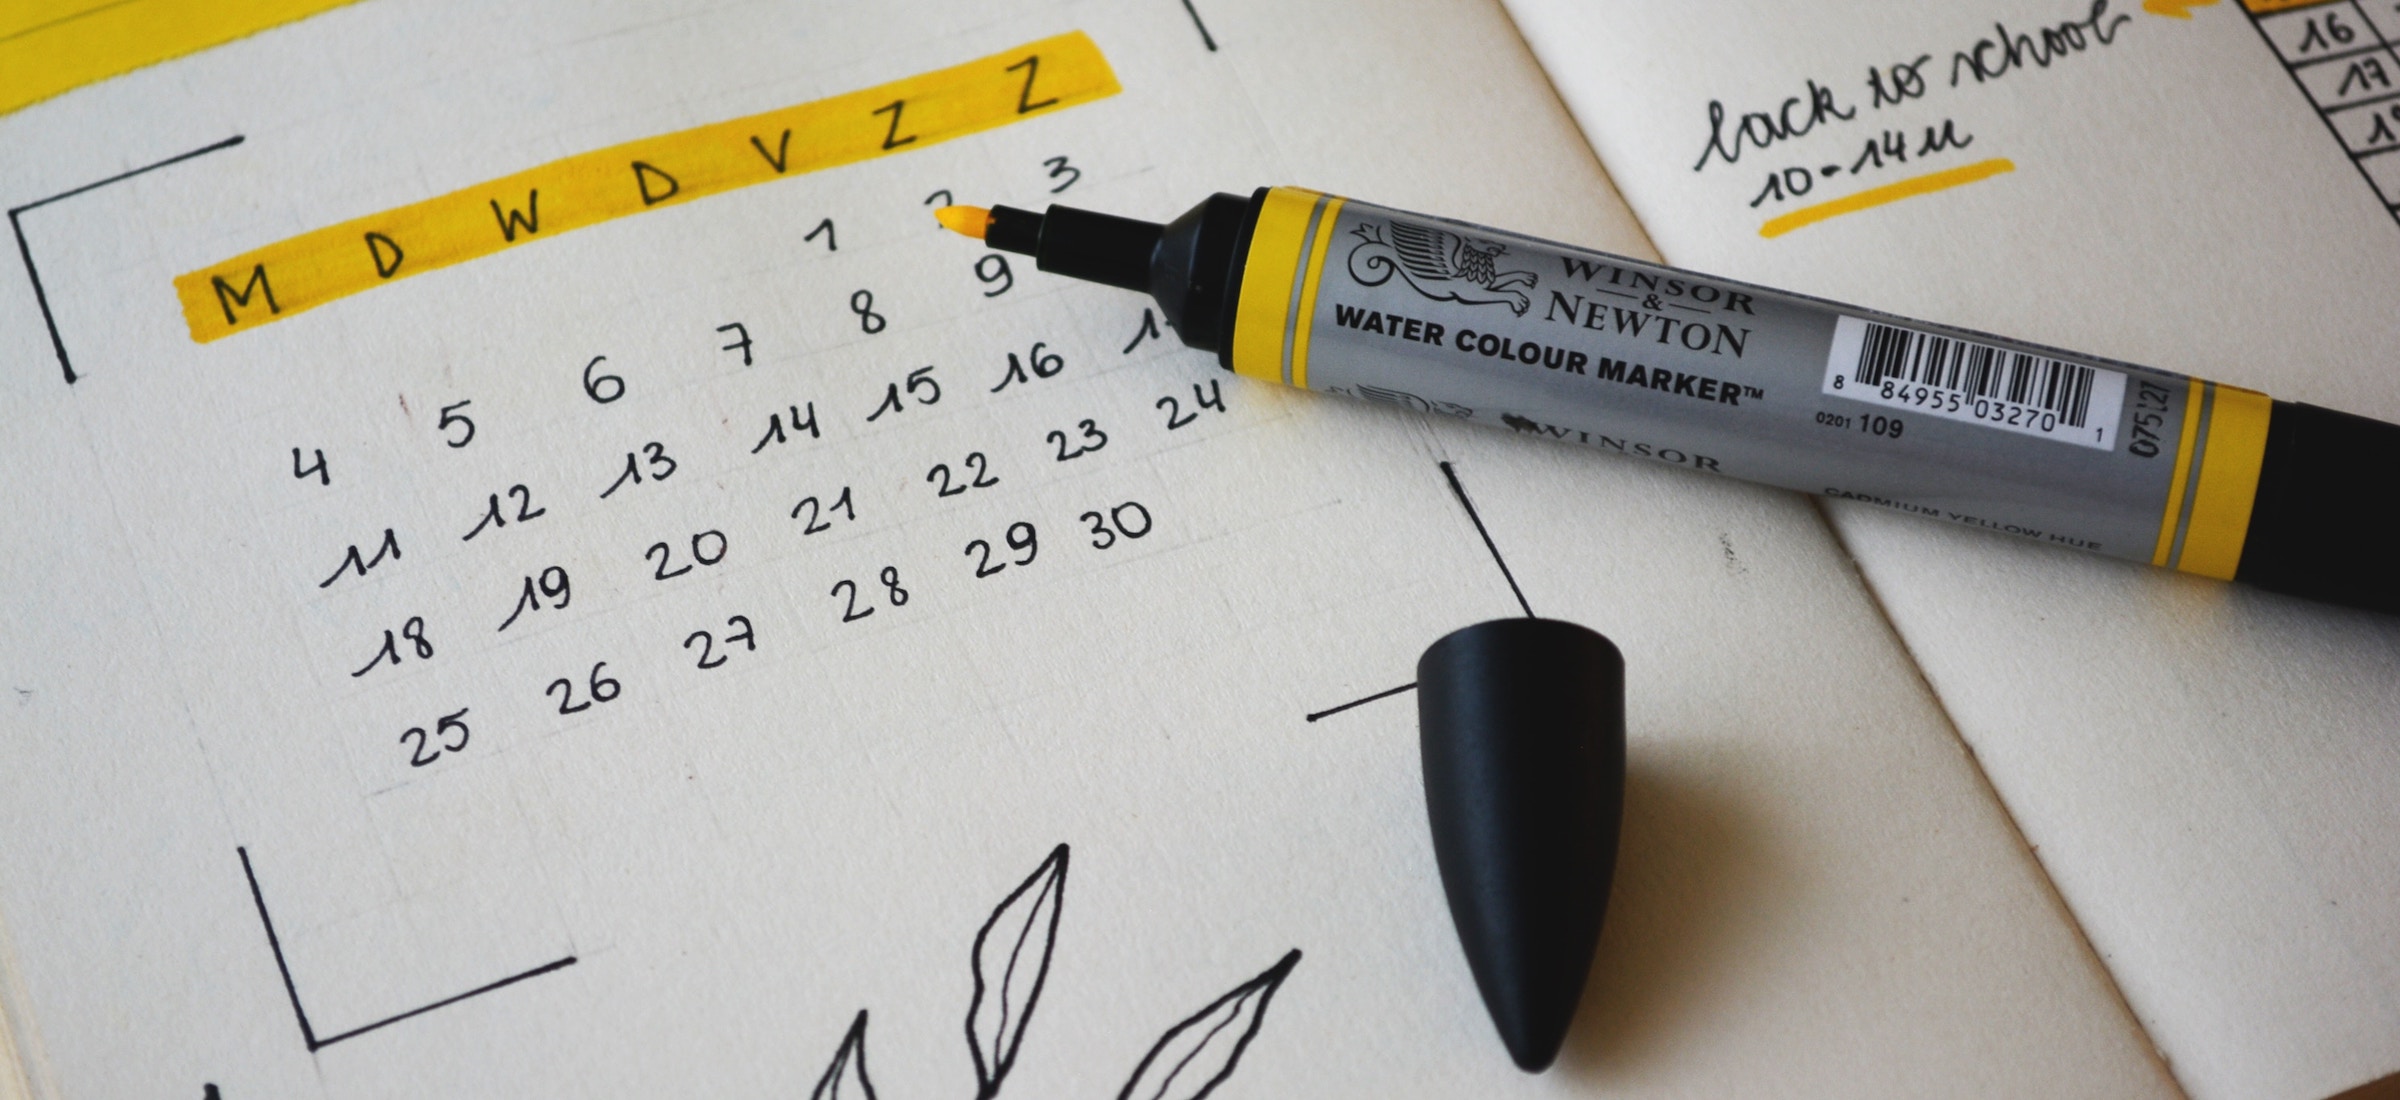 M D W D V Z Z
1 2 3
4 5 6 7 8 9
11 12 13 14 15 16
18 19 20 21 22 23 24
25 26 27 28 29 30
back to school
10-14u
16
17
WINSOR
&
NEWTON
WATER COLOUR MARKER™
8 84955 03270 1
0201 109
075127
WINSOR
CADMIUM YELLOW HUE